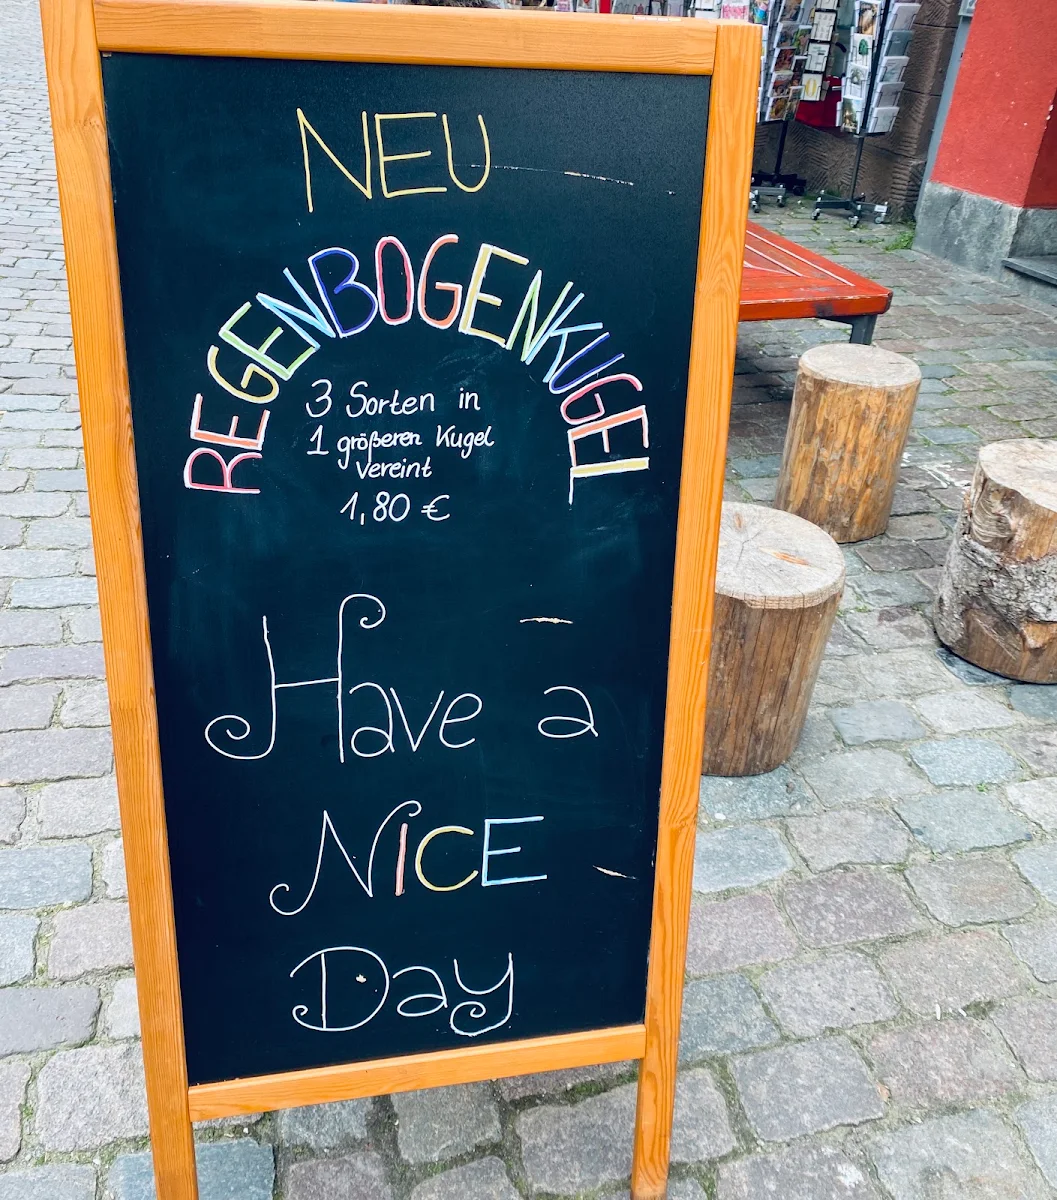 NEU
REGENBOGENKUGEL
3 Sorten in
1 größeren Kugel
vereint
1,80 €
Have a
NICE
Day